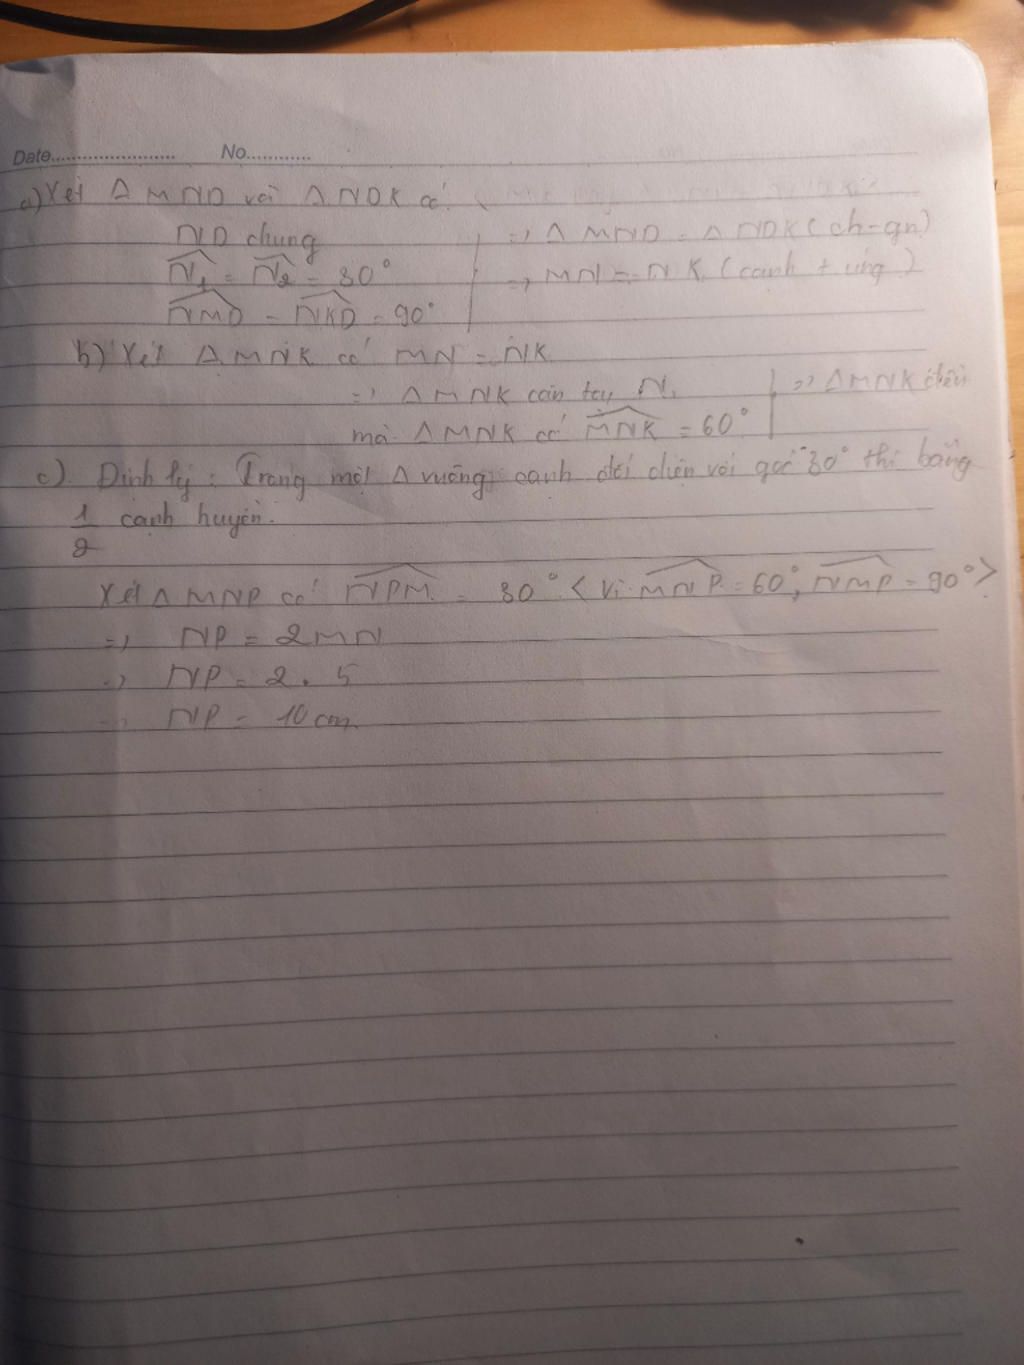 Date........................ No............
a) Xét Δ MND với Δ NDK có:
ND chung
N̂₁ = N̂₂ = 30°
NMD = NKD = 90°
=> Δ MND = Δ NDK (ch-gn)
=> MN = NK (cạnh t ứng)
b) Xét Δ MNK có MN = NK
=> Δ MNK cân tại N.
mà Δ MNK có MNK = 60°
=> Δ MNK đều
c) Định lý: Trong một Δ vuông, cạnh đối diện với góc 30° thì bằng
1/2 cạnh huyền.
Xét Δ MNP có NPM = 30° < Vì MNP = 60°, NMP = 90° >
=> NP = 2MN
=> NP = 2 . 5
=> NP = 10 cm